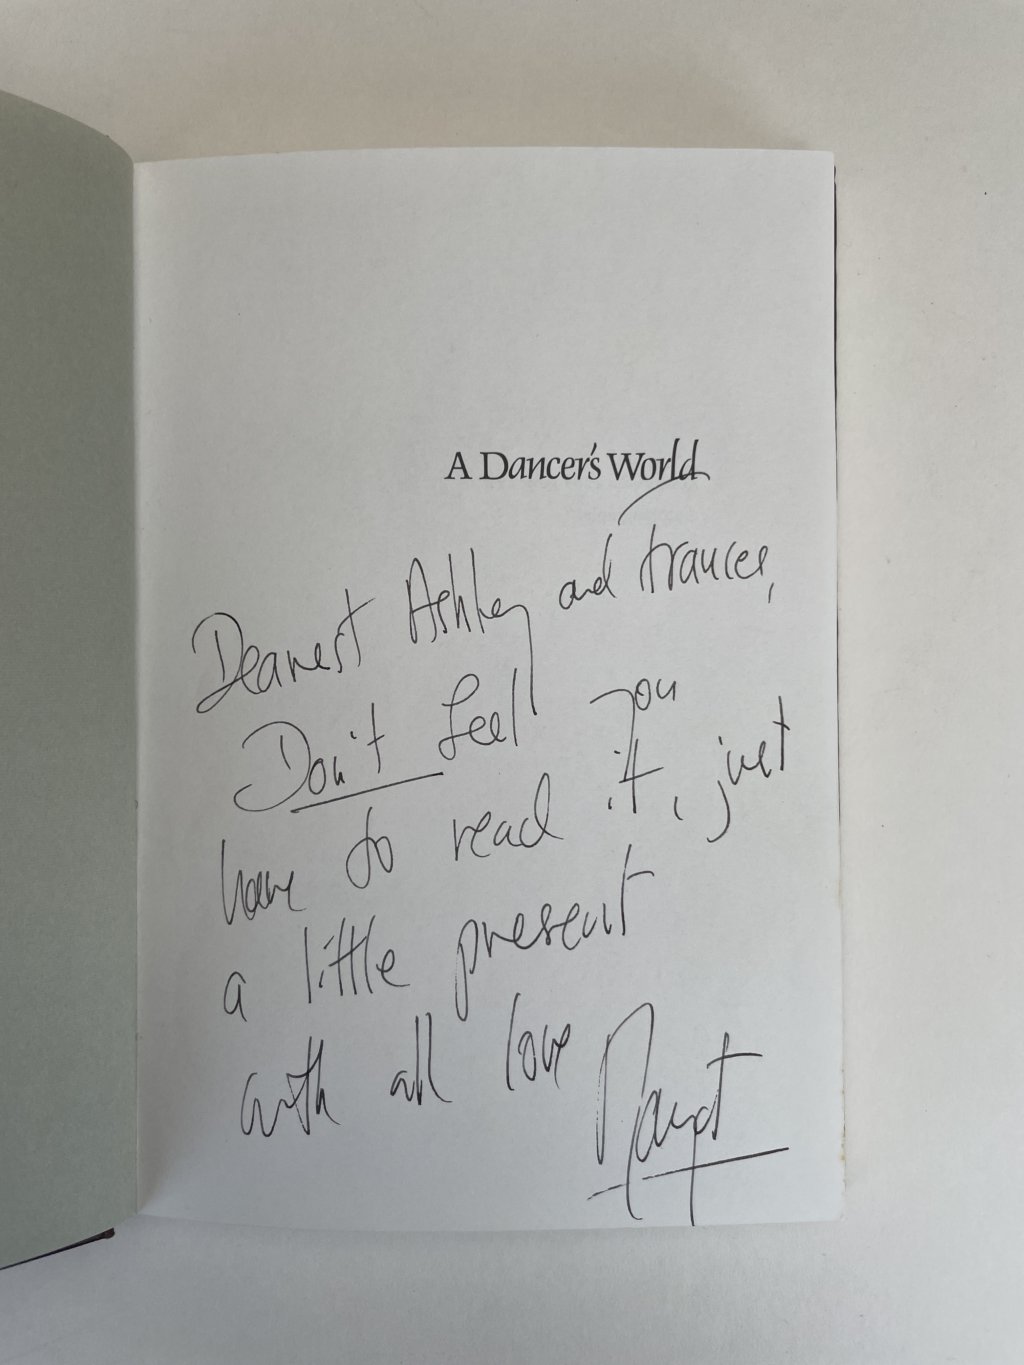 A Dancer's World
Dearest Ashley and Frances,
Don't feel you
have to read it, just
a little present
with all love
Margot